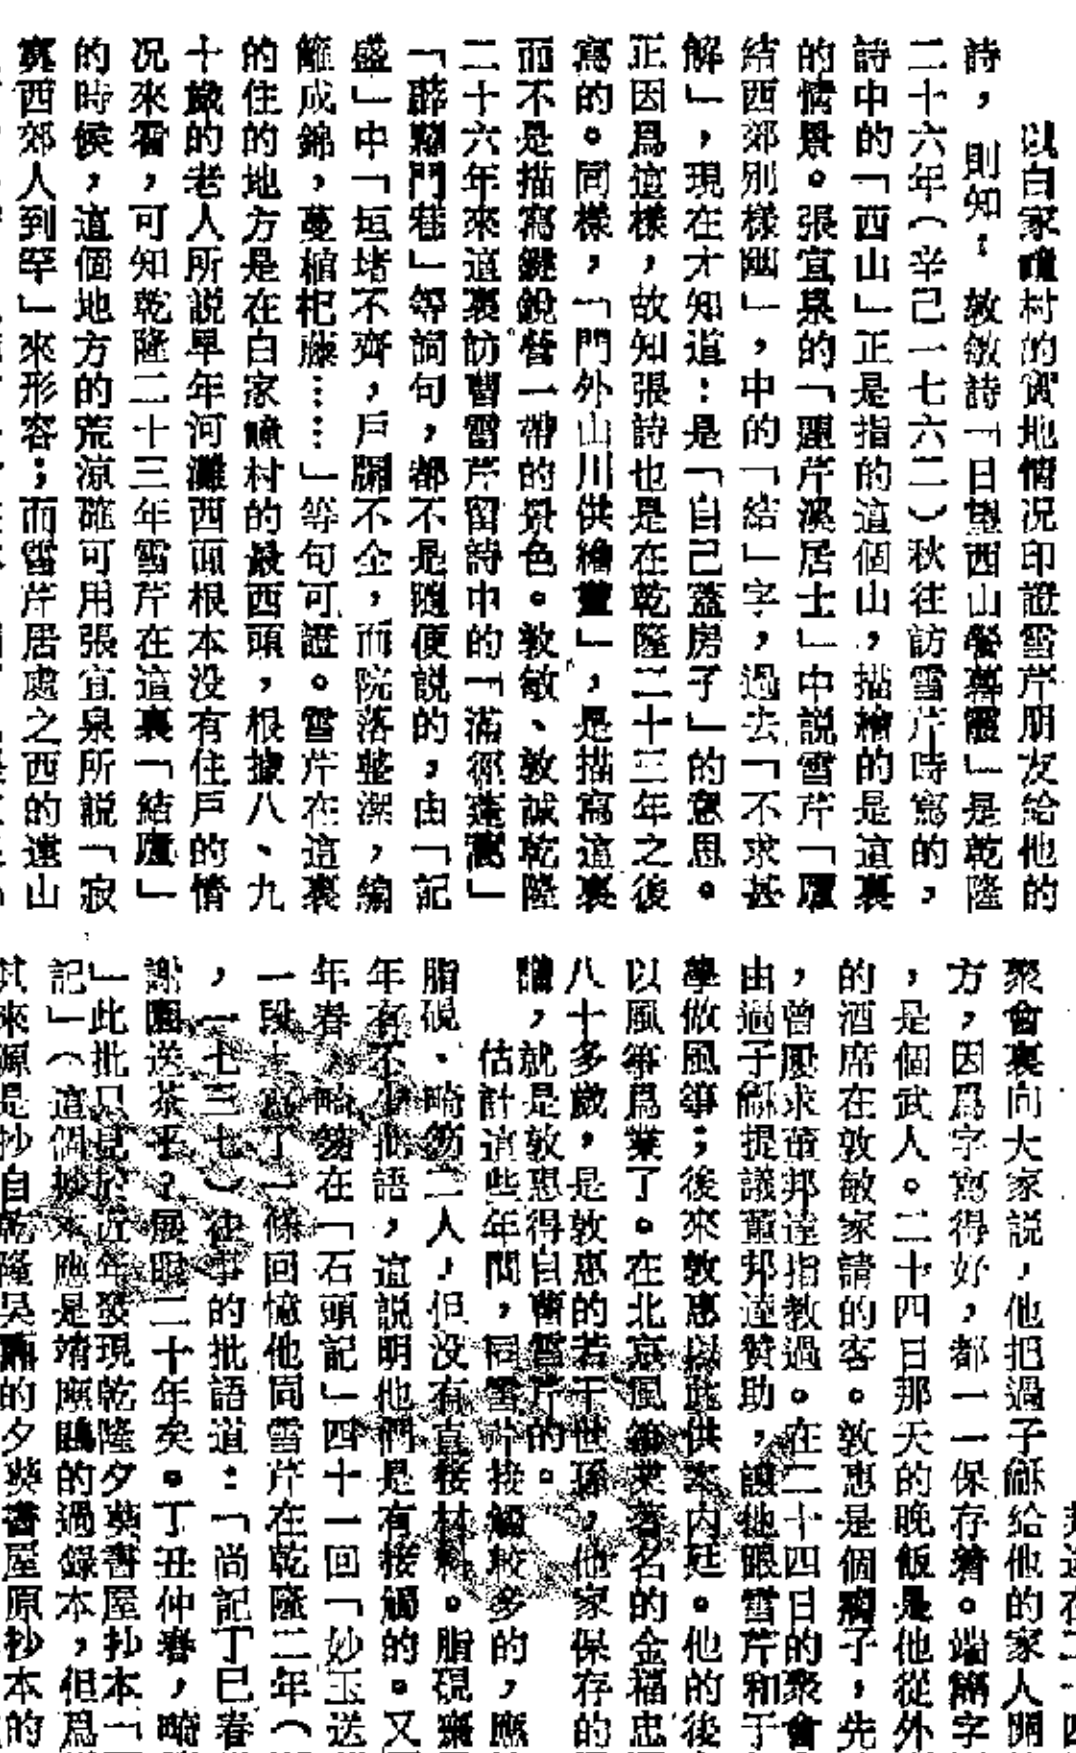 以白家疃村的實地情况印證雪芹朋友給他的
詩，則知：敦敏詩「日望西山餐暮霞」是乾隆
二十六年（辛己一七六二）秋往訪雪芹時寫的，
詩中的「西山」正是指的這個山，描繪的是這裏
的情景。張宜泉的「題芹溪居士」中説雪芹「廬
結西郊別樣幽」，中的「結」字，過去「不求甚
解」，現在才知道：是「自己蓋房子」的意思。
正因爲這樣，故知張詩也是在乾隆二十三年之後
寫的。同樣，「門外山川供繪畫」，是描寫這裏
而不是描寫健銳營一帶的景色。敦敏、敦誠乾隆
二十六年來這裏訪曹雪芹留詩中的「滿徑蓬蒿」
「薜蘿門巷」等詞句，都不是隨便説的，由「記
盛」中「垣堵不齊，戶牖不全，而院落整潔，編
籬成錦，蔓植杞藤……」等句可證。雪芹在這裏
的住的地方是在白家疃村的最西頭，根據八、九
十歲的老人所説早年河灘西面根本没有住戶的情
况來看，可知乾隆二十三年雪芹在這裏「結廬」
的時候，這個地方的荒涼確可用張宜泉所説「寂
寞西郊人到罕」來形容；而雪芹居處之西的遠山
聚會裏向大家説，他把過子龢給他的家人
方，因爲字寫得好，都一一保存着。端
，是個武人。二十四日那天的晚飯是他從外
的酒席在敦敏家請的客。敦惠是個 子，先
，曾屢求董邦達指教過。在二十四日的聚會
由過子龢提議董邦達贊助，讓他跟雪芹和于
學做風箏；後來敦惠以此供 内廷。他的後
以風箏爲業了。在北京風箏業著名的金福忠
八十多歲，是敦惠的若干世孫，他家保存的
譜，就是敦惠得自曹雪芹的。
估計這些年間，同雪芹接觸較多的，應
脂硯、畸笏二人，但没有直接材料。脂硯齋
年有不少批語，這説明他們是有接觸的。又
年春，畸笏在「石頭記」四十一回「妙玉送
一段 寫了一條回憶他同雪芹在乾隆二年（
，一七三七）往事的批語道：「尚記丁巳春
謝園送茶乎？展眼二十年矣。丁丑仲春，畸
」此批只見於近年發現乾隆夕葵書屋抄本「
記」（這個抄本應是靖應鵾的過録本，但爲
其來源是抄自乾隆吴鼒的夕葵書屋原抄本的